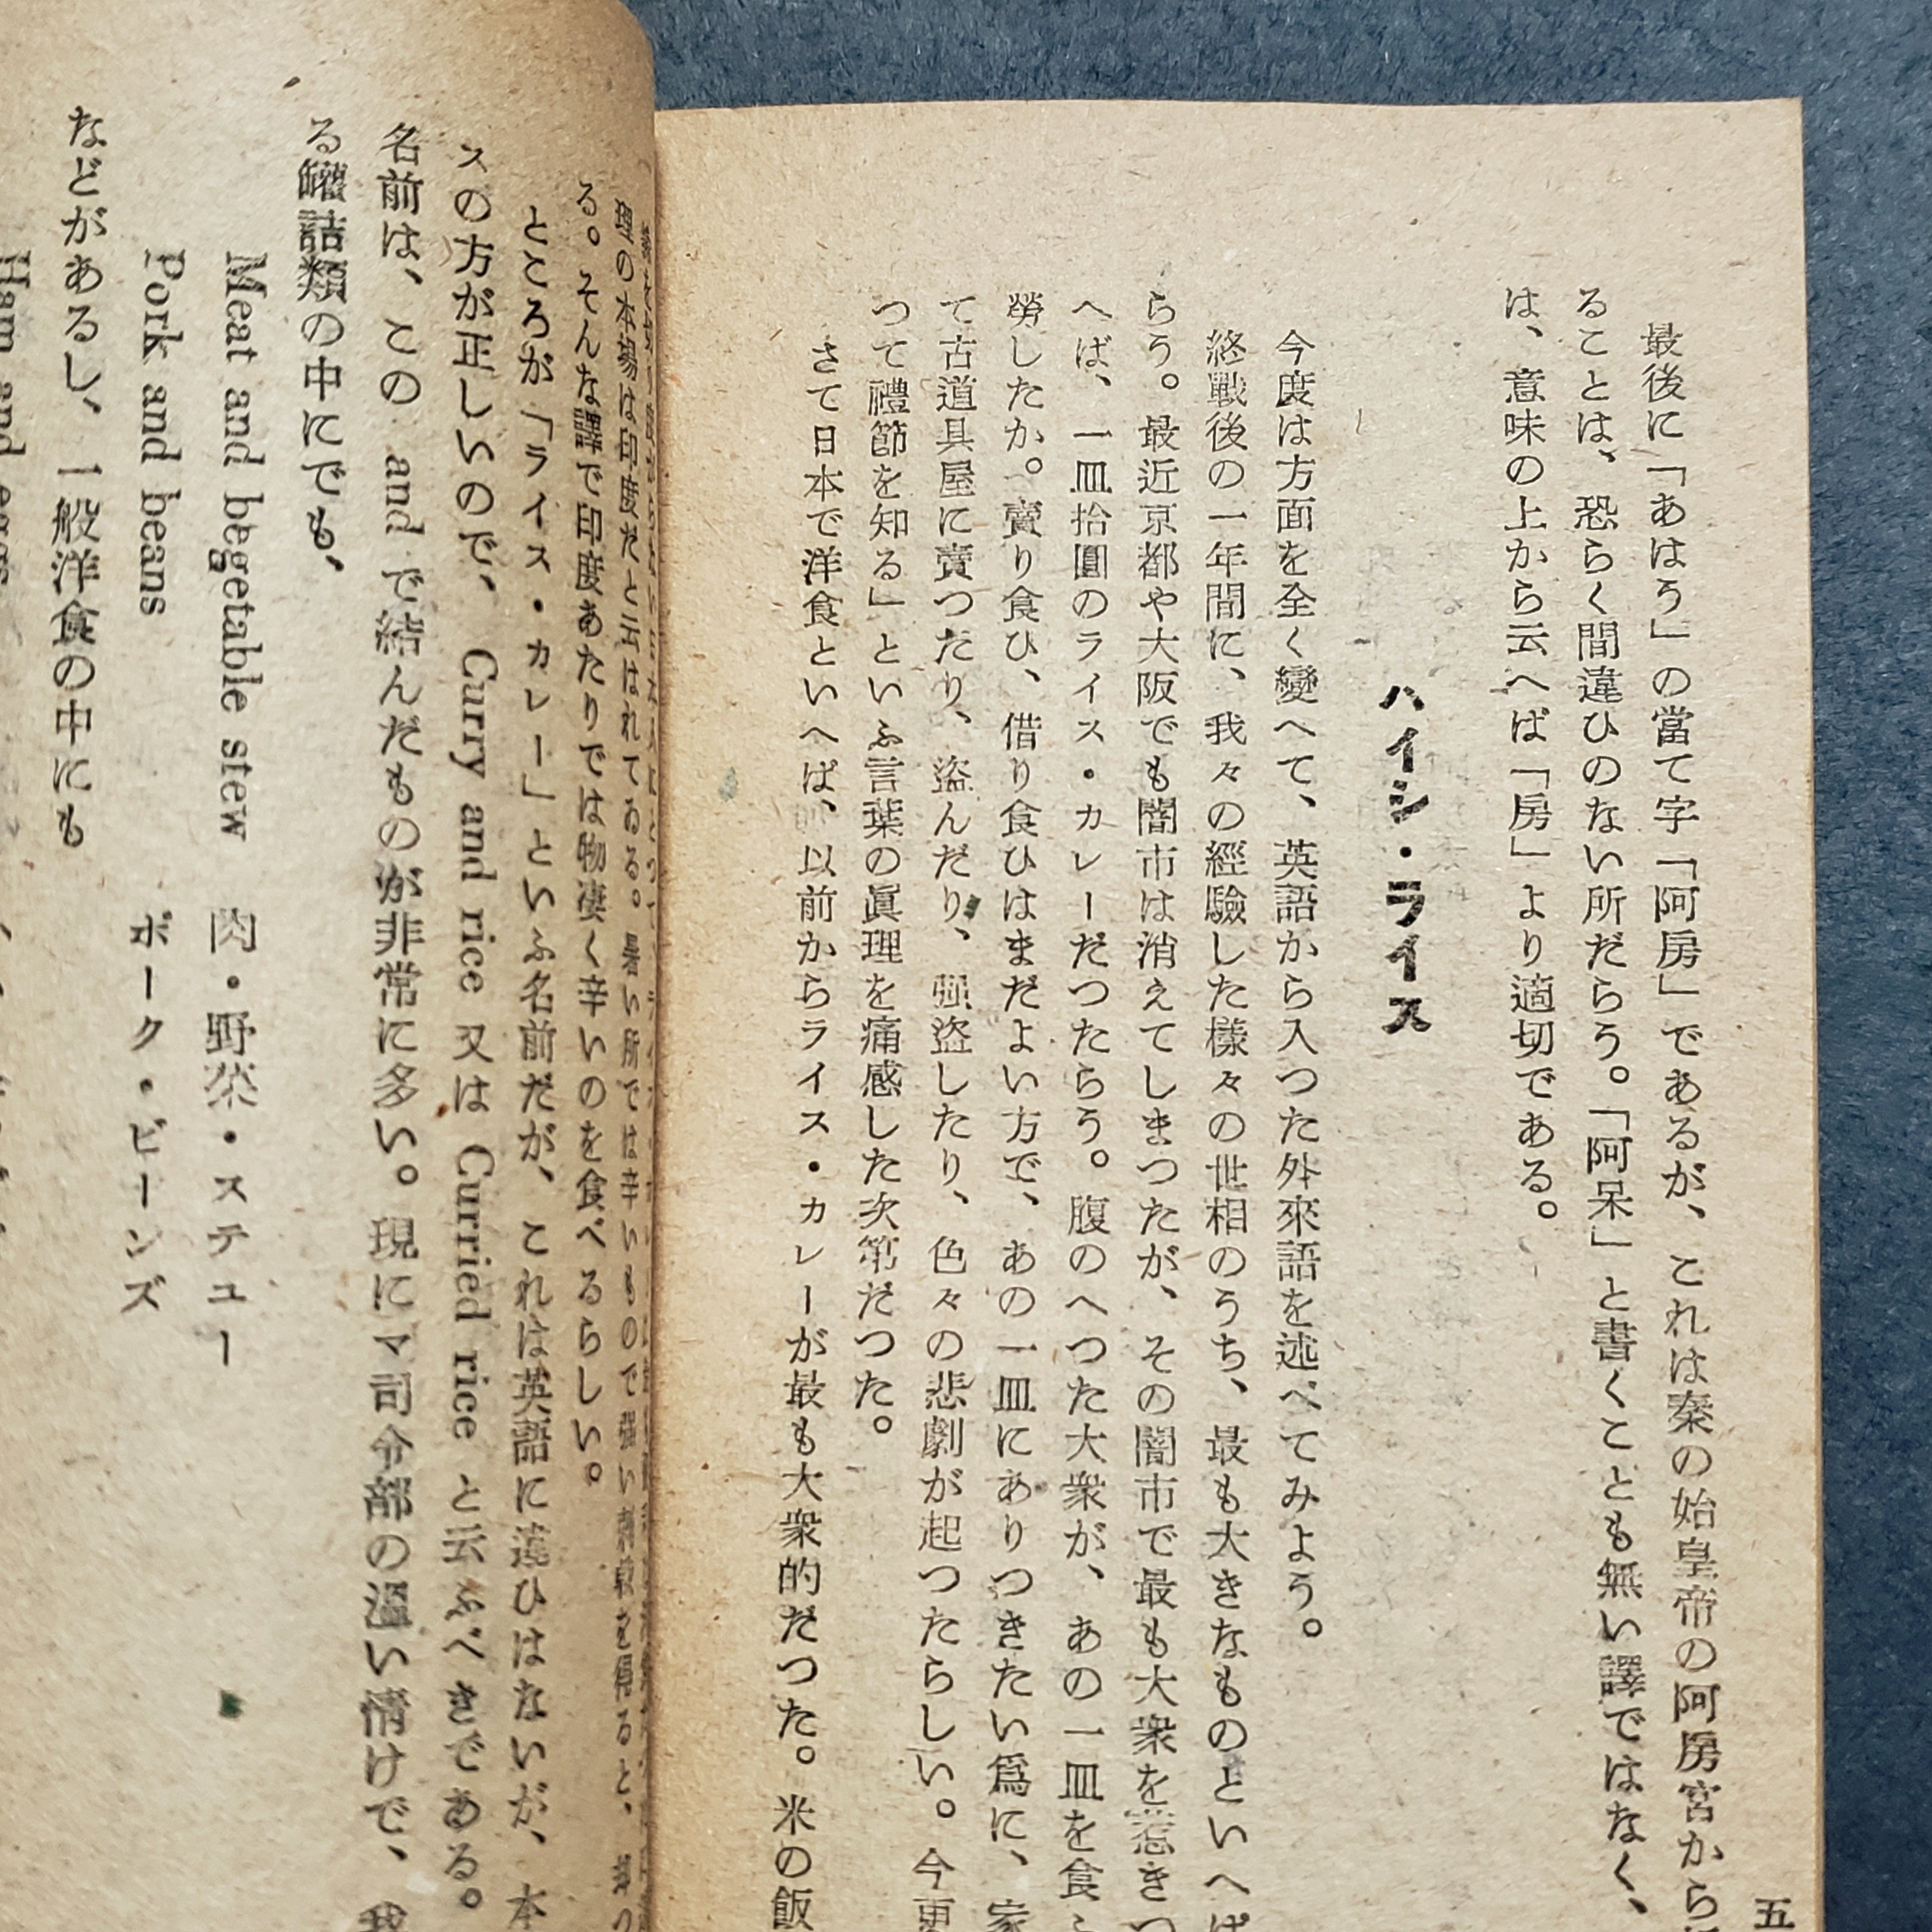 最後に「あはう」の當て字「阿房」であるが、これは秦の始皇帝の阿房宮から
ることは、恐らく間違ひのない所だらう。「阿呆」と書くことも無い譯ではなく、
は、意味の上から云へば「房」より適切である。
ハイシ・ライス
今度は方面を全く變へて、英語から入つた外來語を述べてみよう。
終戰後の一年間に、我々の經驗した樣々の世相のうち、最も大きなものといへば
らう。最近京都や大阪でも闇市は消えてしまつたが、その闇市で最も大衆を惹きつ
へば、一皿拾圓のライス・カレーだつたらう。腹のへつた大衆が、あの一皿を食
勞したか。賣り食ひ、借り食ひはまだよい方で、あの一皿にありつきたい爲に、家
て古道具屋に賣つたり、盜んだり、强盜したり、色々の悲劇が起つたらしい。今更
つて禮節を知る」といふ言葉の眞理を痛感した次第だつた。
さて日本で洋食といへば、以前からライス・カレーが最も大衆的だつた。米の飯
理の本場は印度だと云はれてゐる。暑い所では辛いもので强い刺戟を得ると、
る。そんな譯で印度あたりでは物凄く辛いのを食べるらしい。
ところが「ライス・カレー」といふ名前だが、これは英語に違ひはないが、本
スの方が正しいので、Curry and rice 又は Curried rice と云ふべきである。
名前は、この and で結んだものが非常に多い。現にマ司令部の溫い情けで、我
る罐詰類の中にでも、
Meat and begetable stew 肉・野菜・ステユー
Pork and beans ポーク・ビーンズ
などがあるし、一般洋食の中にも
Ham and eggs
五